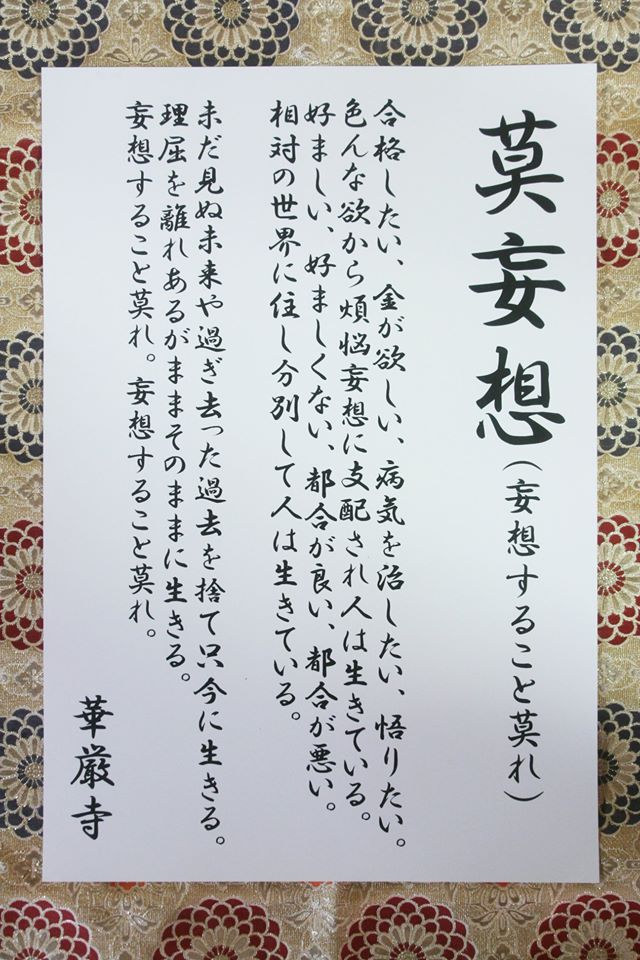 莫妄想(妄想すること莫れ)
合格したい、金が欲しい、病気を治したい、悟りたい。
色んな欲から煩悩妄想に支配され人は生きている。
好ましい、好ましくない、都合が良い、都合が悪い。
相対の世界に住し分別して人は生きている。
未だ見ぬ未来や過ぎ去った過去を捨て只今に生きる。
理屈を離れあるがままそのままに生きる。
妄想すること莫れ。妄想すること莫れ。
華厳寺